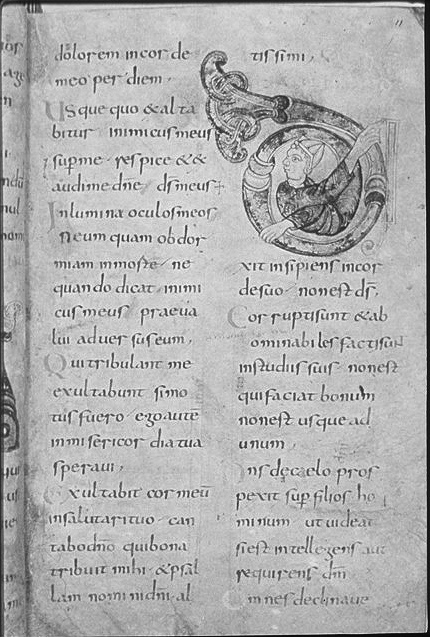 dolorem in corde
meo per diem.
Usque quo exalta
bitur inimicus meus
super me. respice &
exaudi me dne ds meus
Inlumina oculos meos
Neumquam obdor
miam in morte. ne
quando dicat inimi
cus meus praeva
lui adversus eum.
Qui tribulant me
exultabunt si mo
tus fuero. ego autē
in misericordia tua
speravi,
Exultabit cor meū
in salutari tuo. can
tabo dño qui bona
tribuit mihi. & psal
lam nomini dñi al
tissimi,
D
xit insipiens in cor
de suo. non est ds,
Corrupti sunt & ab
ominabiles facti sun
in studiis suis. non est
qui faciat bonum
non est usque ad
unum,
Dns de caelo pros
pexit super filios ho
minum ut videat
si est intellegens aut
requirens dm,
Omnes declinave